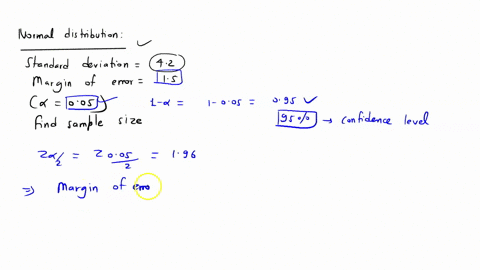 Normal distribution:
Standard deviation = 4.2
Margin of error = 1.5
(α = 0.05) 1-α = 1-0.05 = 0.95
find sample size 95% → confidence level
Zα/2 = Z0.05/2 = 1.96
⇒ Margin of erro